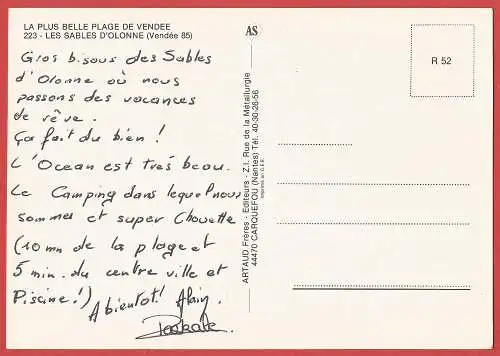 LA PLUS BELLE PLAGE DE VENDEE
223 - LES SABLES D'OLONNE (Vendée 85)
Gros bisous des Sables
d'Olonne où nous
passons des vacances
de rêve.
Ça fait du bien !
L'Ocean est très beau.
Le Camping dans lequel nous
sommes et super chouette
(10 mn de la plage et
5 min. du centre ville et
Piscine !)
A bientot ! Alain
AS
R 52
ARTAUD Frères - Editeurs - Z.I. Rue de la Métallurgie
44470 CARQUEFOU (Nantes) Tél. 40-30-26-56